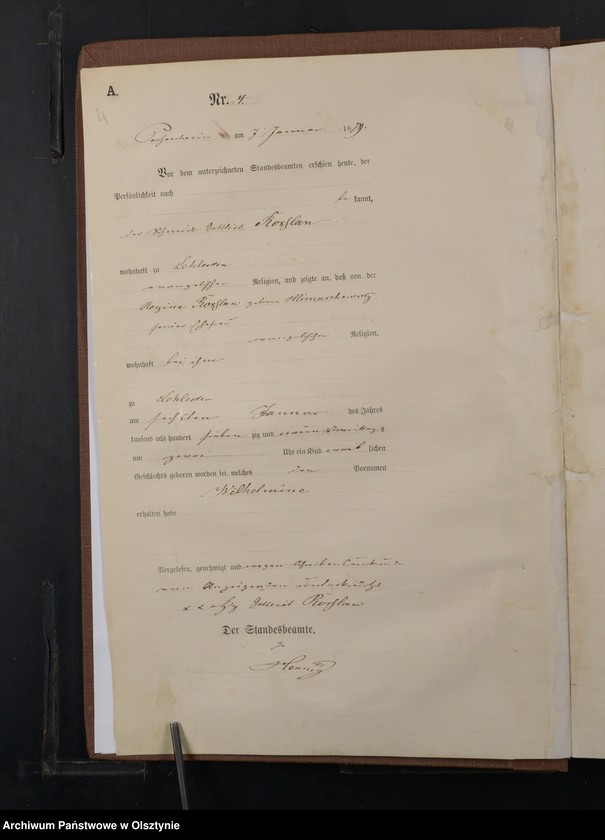 A.
4
Nr. 4.
am 7 Januar 1879.
Vor dem unterzeichneten Standesbeamten erschien heute, der
Persönlichkeit nach
be kannt,
der Schmied Gottlieb
wohnhaft zu
evangelischer Religion, und zeigte an, daß von der
Regina geborne
seiner Ehefrau
evangelischer Religion,
wohnhaft bei ihm
zu
am sechsten Januar des Jahres
tausend acht hundert sieben zig und neun Vormittags
um zwei Uhr ein Kind weib lichen
Geschlechts geboren worden sei, welches den Vornamen
Wilhelmine
erhalten habe
Vorgelesen, genehmigt und wegen Schreibensunkunde
vom Anzeigenden unterkreuzt
Gottlieb
Der Standesbeamte.
Hennig
Archiwum Państwowe w Olsztynie